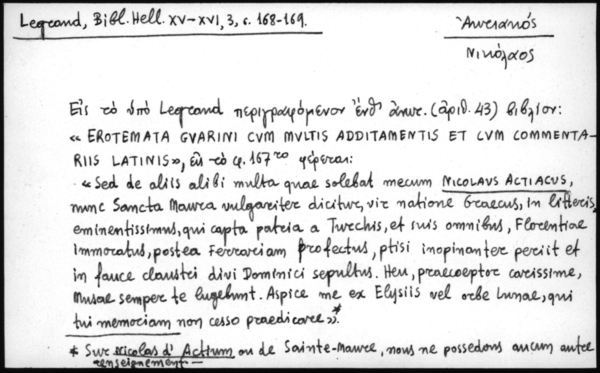 Legrand, Bibl. Hell. XV-XVI, 3, σ. 168-169.
Ἀκτιακός
Νικόλαος
Εἰς τὸ ὑπὸ Legrand περιγραφόμενον ἐνθ' ἀνωτ. (ἀριθ. 43) βιβλίον:
« EROTEMATA GVARINI CVM MVLTIS ADDITAMENTIS ET CVM COMMENTA-
RIIS LATINIS», εἰς τὸ φ. 167 ro φέρεται:
«Sed de aliis alibi multa quae solebat mecum NICOLAVS ACTIACUS,
nunc Sancta Maura vulgariter dicitur, vir natione Graecus, in litteris
eminentissimus, qui capta patria a Turchis, et suis omnibus, Florentiae
immoratus, postea Ferrariam profectus, ptisi inopinanter periit et
in fauce claustri divi Dominici sepultus. Heu, praeceptor carissime,
Musae semper te lugebunt. Aspice me ex Elysiis vel orbe Lunae, qui
tui memoriam non cesso praedicare».*
* Sur Nicolas d' Actium ou de Sainte-Maure, nous ne possedons aucun autre
renseignement-